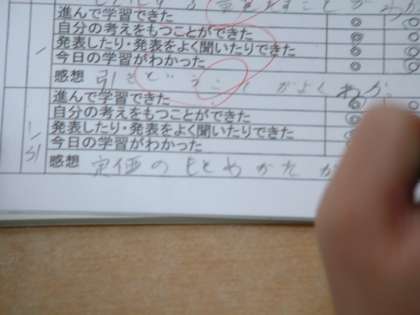 進んで学習できた ◎
自分の考えをもつことができた ◎
発表したり・発表をよく聞いたりできた ◎
今日の学習がわかった ◎
感想 引きざんということがよくわか
進んで学習できた ◎
自分の考えをもつことができた ◎
発表したり・発表をよく聞いたりできた ◎
今日の学習がわかった ◎
1/31
感想 定価のもとめかたが